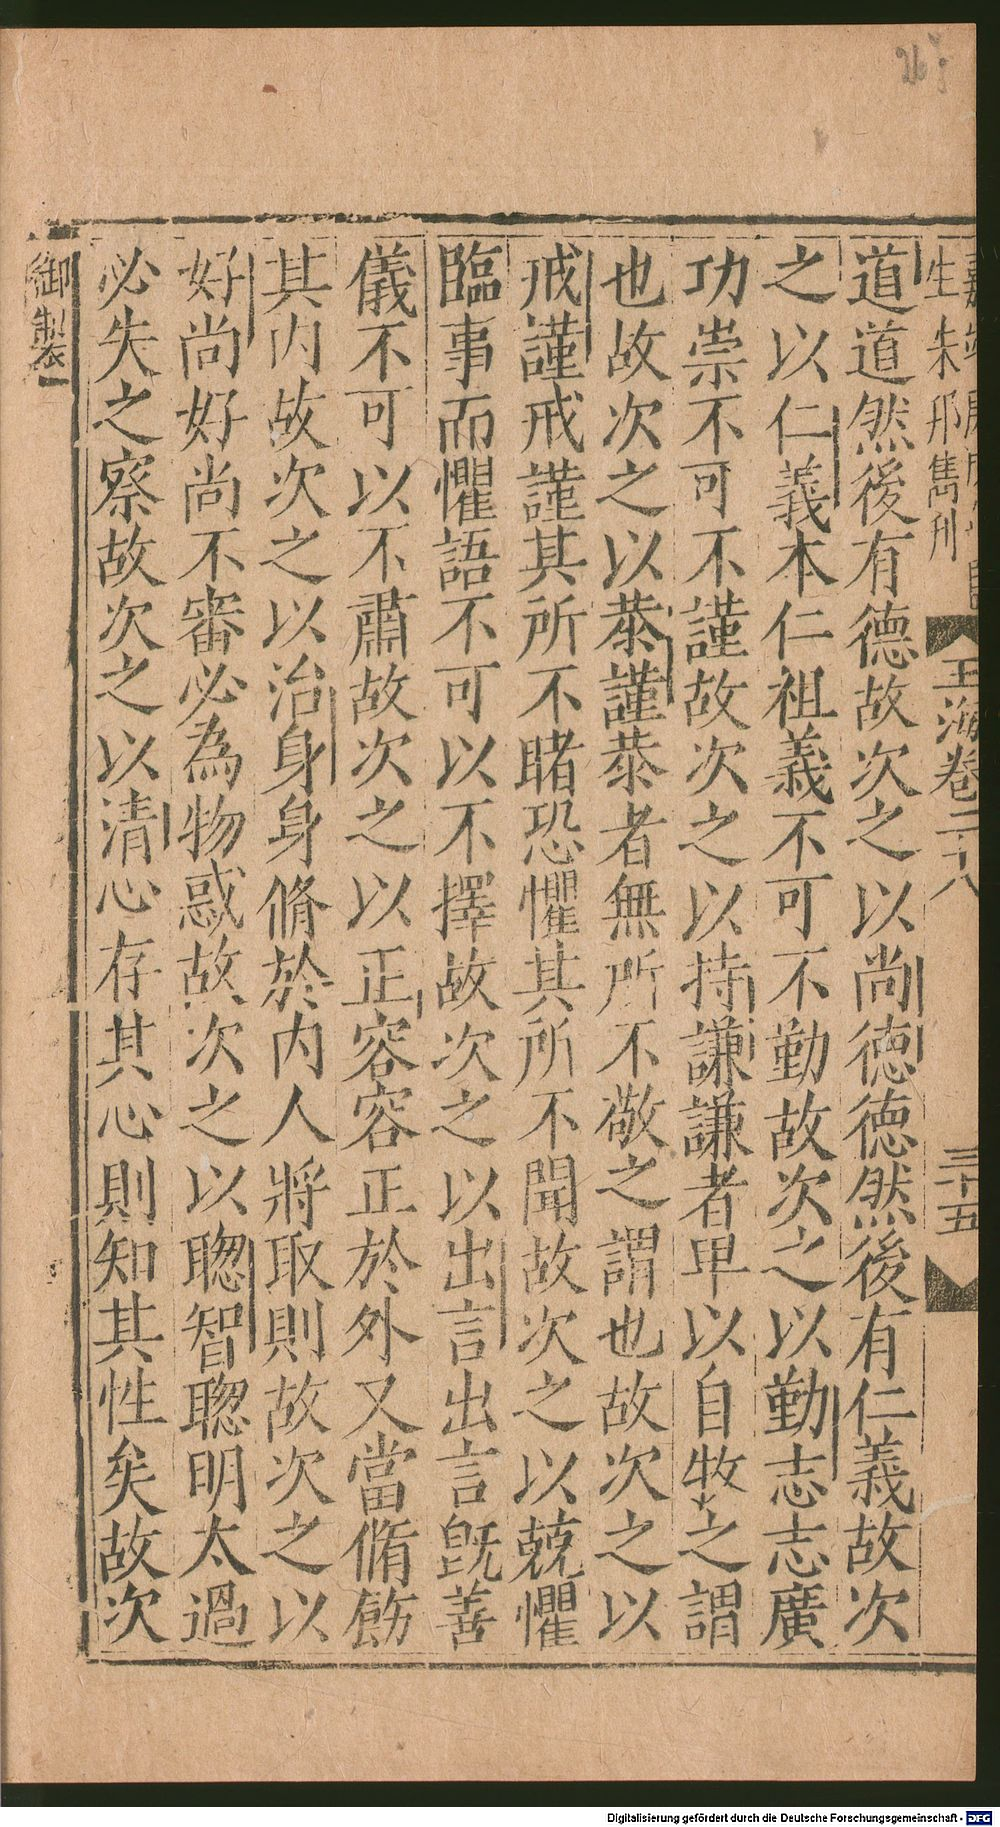 生朱邦儁刊
玉海卷二十八
三十五
道道然後有德故次之以尚德德然後有仁義故次
之以仁義本仁祖義不可不勤故次之以勤志志廣
功崇不可不謹故次之以持謙謙者卑以自牧之謂
也故次之以恭謹恭者無所不敬之謂也故次之以
戒謹戒謹其所不睹恐懼其所不聞故次之以兢懼
臨事而懼語不可以不擇故次之以出言出言旣善
儀不可以不肅故次之以正容容正於外又當脩飭
其内故次之以治身身脩於内人將取則故次之以
好尚好尚不審必為物惑故次之以聰智聰明太過
必失之察故次之以清心存其心則知其性矣故次
御製
Digitalisierung gefördert durch die Deutsche Forschungsgemeinschaft - DFG